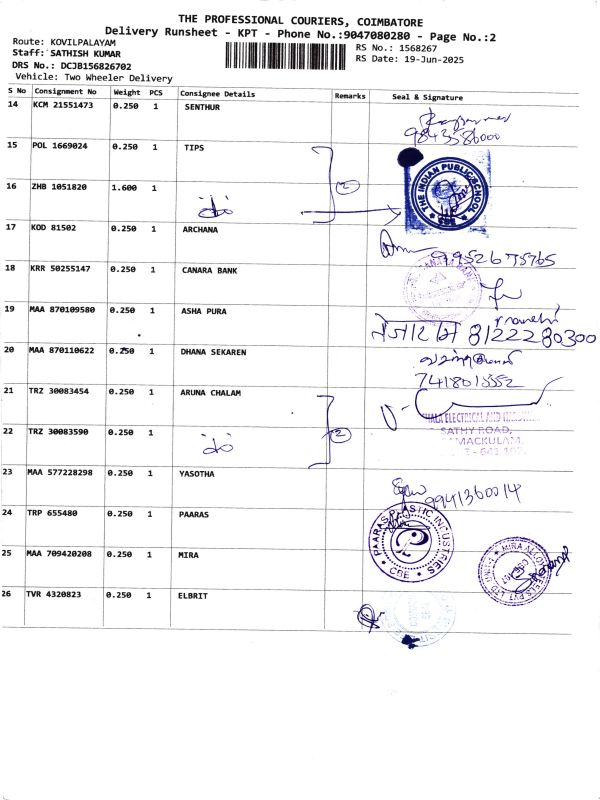 THE PROFESSIONAL COURIERS, COIMBATORE
Delivery Runsheet - KPT - Phone No.:9047080280 - Page No.:2
Route: KOVILPALAYAM
Staff: SATHISH KUMAR
DRS No.: DCJB156826702
Vehicle: Two Wheeler Delivery
RS No.: 1568267
RS Date: 19-Jun-2025
S No Consignment No Weight PCS Consignee Details Remarks Seal & Signature
14 KCM 21551473 0.250 1 SENTHUR
9843586000
15 POL 1669024 0.250 1 TIPS
THE INDIAN PUBLIC SCHOOL
16 ZHB 1051820 1.600 1
2
17 KOD 81502 0.250 1 ARCHANA
9952675765
18 KRR 50255147 0.250 1 CANARA BANK
19 MAA 870109580 0.250 1 ASHA PURA
8122280300
20 MAA 870110622 0.250 1 DHANA SEKAREN
7418013552
21 TRZ 30083454 0.250 1 ARUNA CHALAM
ELECTRICAL AND
SATHY ROAD,
22 TRZ 30083590 0.250 1
2
23 MAA 577228298 0.250 1 YASOTHA
9941360014
24 TRP 655480 0.250 1 PAARAS
PAARAS PLASTIC INDUSTRIES
CBE
25 MAA 709420208 0.250 1 MIRA
26 TVR 4320823 0.250 1 ELBRIT